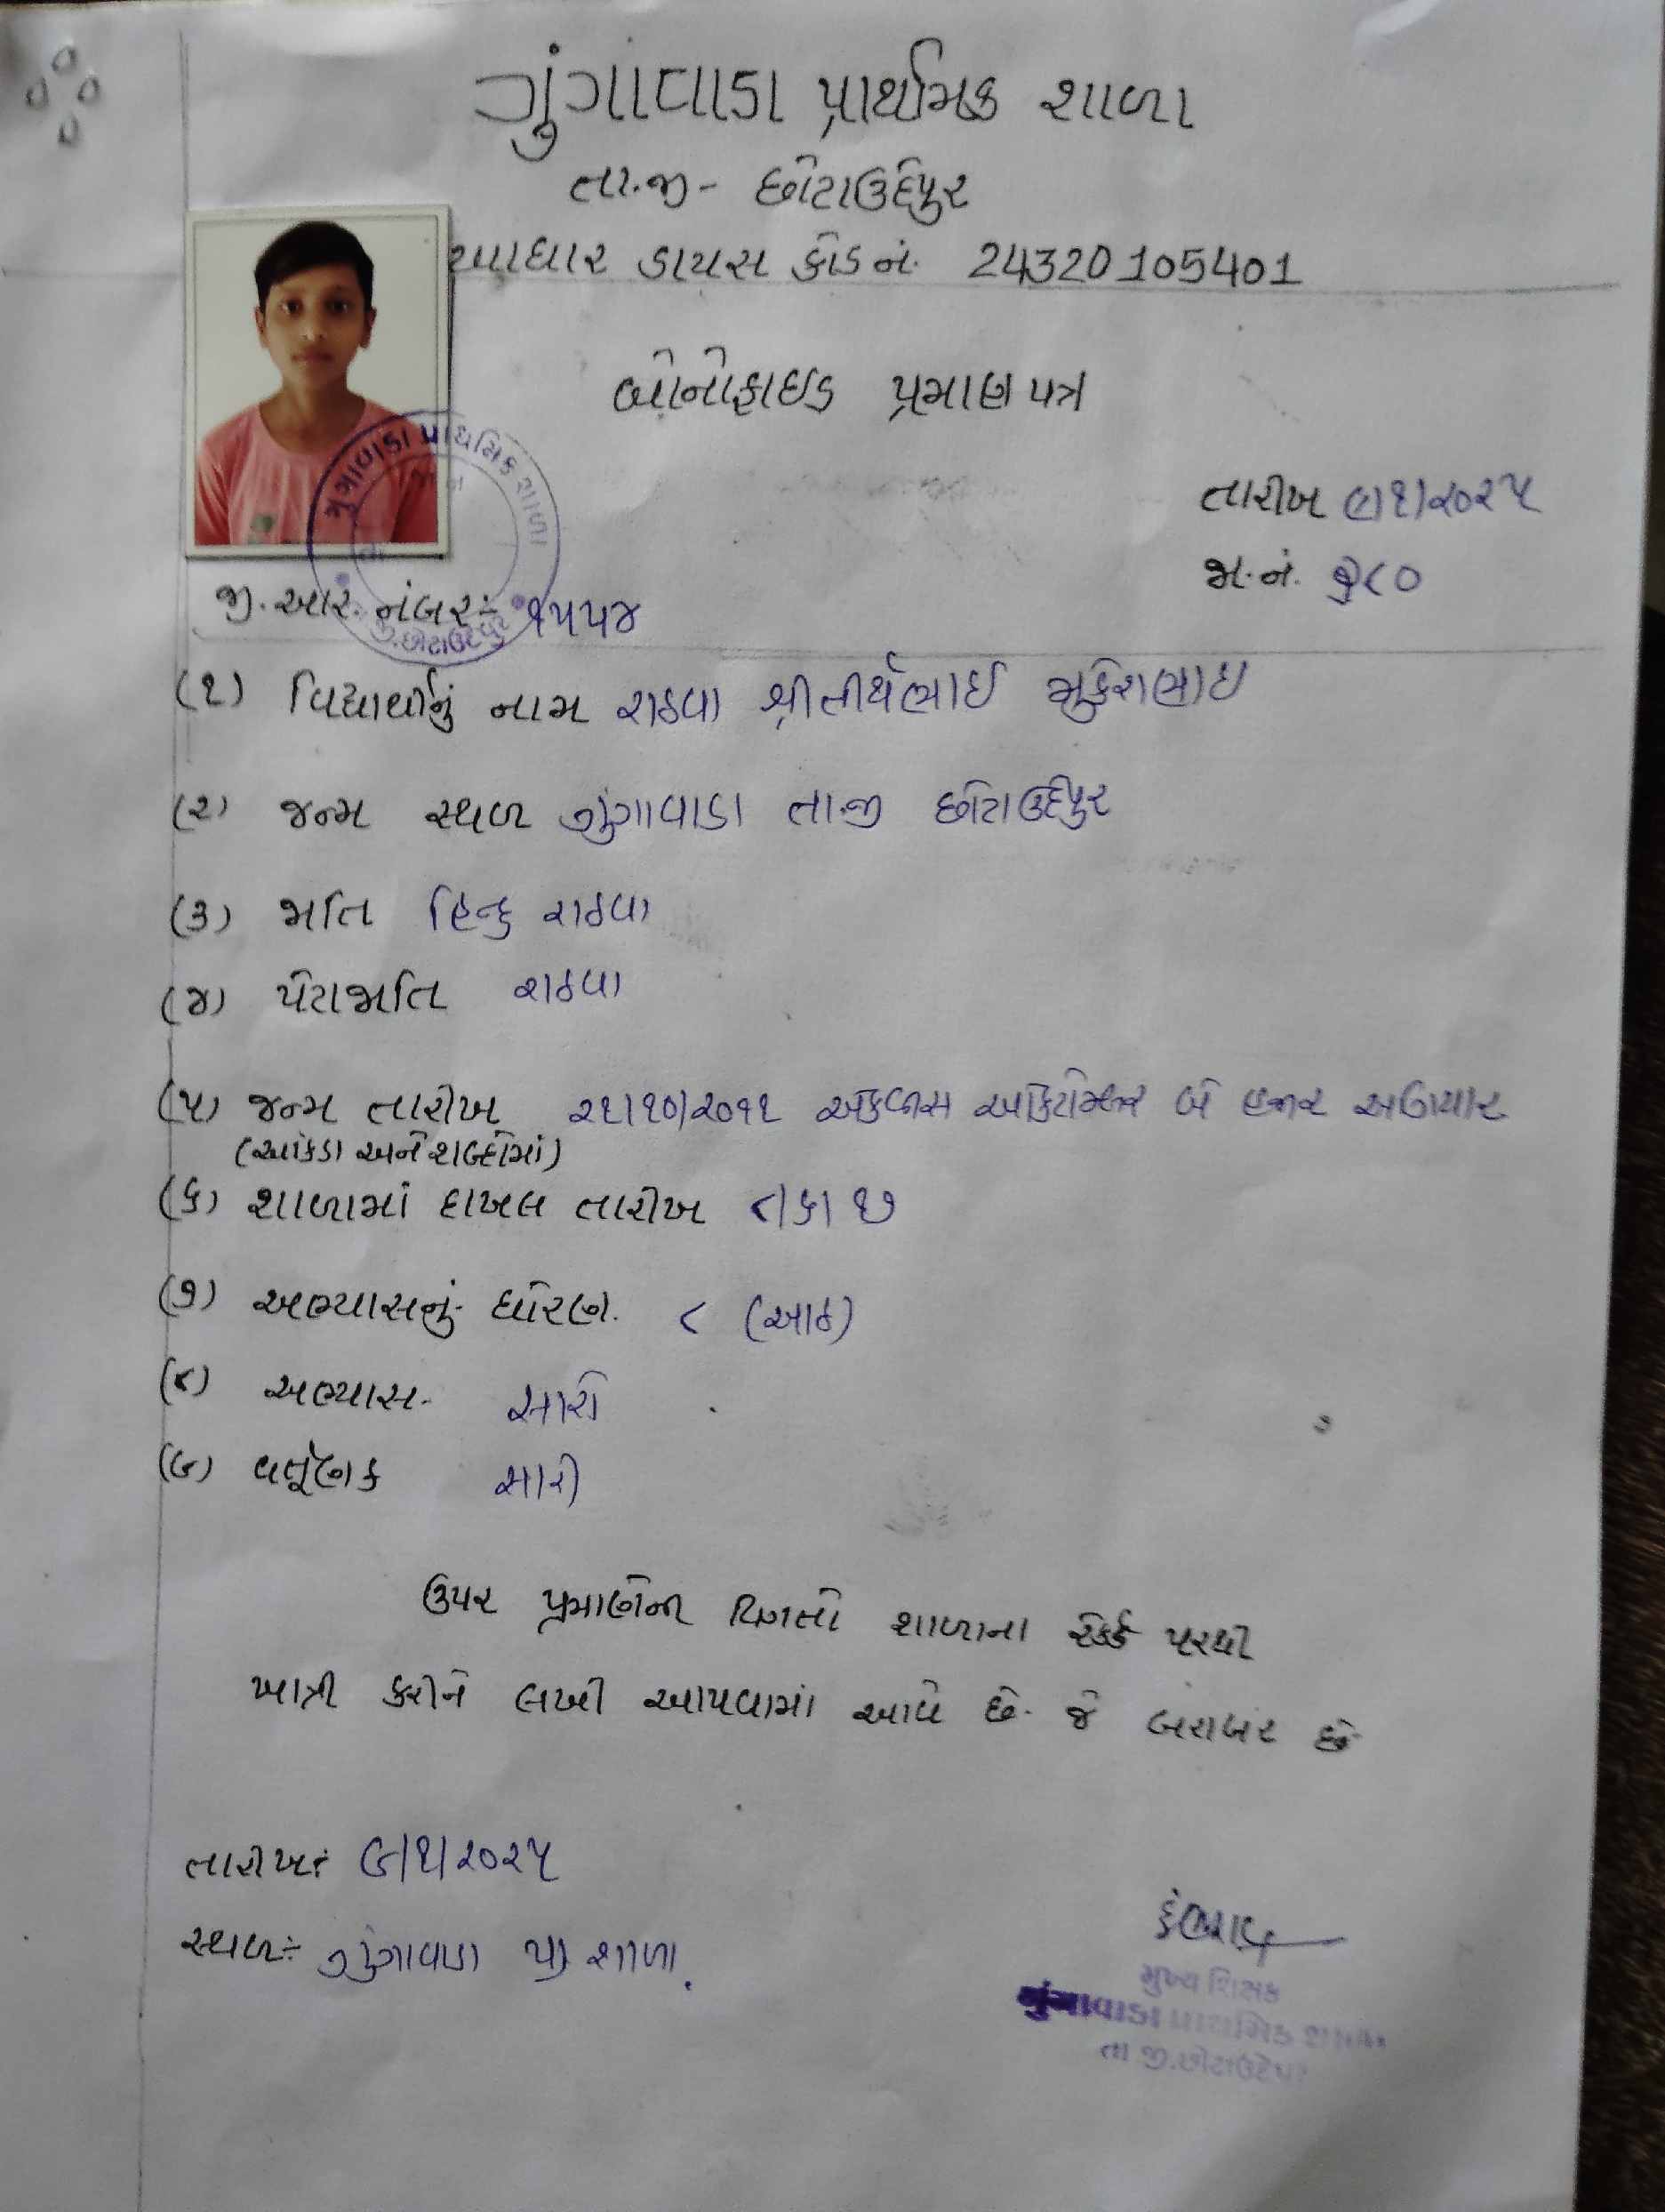 ગુંગાવાડા પ્રાથમિક શાળા
તા.જી- છોટાઉદેપુર
આધાર ડાયસ કોડ નં. 24320105401
બોનોફાઇડ પ્રમાણ પત્ર
તારીખ ૯/૧/૨૦૨૫
જા.નં. ૨૮૦
ગુંગાવાડા પ્રાથમિક શાળા
જી.છોટાઉદેપુર
જી.આર. નંબર:- ૧૫૫૪
(૧) વિદ્યાર્થીનું નામ રાઠવા શ્રીતીર્થભાઈ મુકેશભાઇ
(૨) જન્મ સ્થળ ગુંગાવાડા તા.જી છોટાઉદેપુર
(૩) જાતિ હિન્દુ રાઠવા
(૪) પેટાજાતિ રાઠવા
(૫) જન્મ તારીખ ૨૧/૧૦/૨૦૧૧ એકવીસ ઓક્ટોમ્બર બે હજાર અગીયાર
(આંકડા અને શબ્દોમાં)
(૬) શાળામાં દાખલ તારીખ ૮/૬/૧૭
(૭) અભ્યાસનું ધોરણ. ૮ (આઠ)
(૮) અભ્યાસ- સારો
(૯) વર્તૂણક સારી
ઉપર પ્રમાણેની વિગતો શાળાના રેકર્ડ પરથી
ખાત્રી કરીને લખી આપવામાં આવે છે. જે બરાબર છે
તારીખ: ૯/૧/૨૦૨૫
સ્થળ:- ગુંગાવાડા પ્રા શાળા.
મુખ્ય શિક્ષક
ગુંગાવાડા પ્રાથમિક શાળા
તા જી.છોટાઉદેપુર